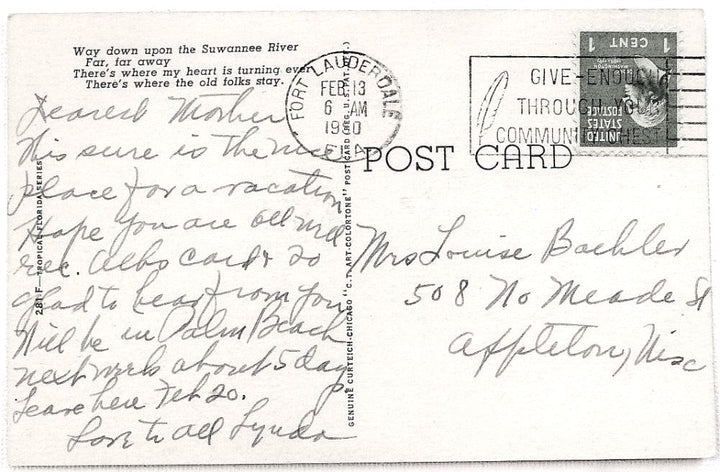 Way down upon the Suwannee River
Far, far away
There's where my heart is turning ever
There's where the old folks stay.
Dearest Mother
This sure is the
place for a vacation
Hope you are all
rec. cards so
glad to hear from you
Will be in Palm Beach
next week about 5 days
Leave here Feb 20.
Love to all Lynda
2B11F—TROPICAL FLORIDA SERIES
GENUINE CURTEICH-CHICAGO "C.T. ART-COLORTONE" POST CARD (REG. U.S. PAT. OFF.)
FORT LAUDERDALE
FEB 13
6 AM
FLA
1 CENT 1
UNITED
STATES
POSTAGE
GIVE-ENOUGH
THROUGH YOUR
COMMUNITY CHEST
POST CARD
Mrs Louise Baehler
508 No Meade St
Appleton, Wisc